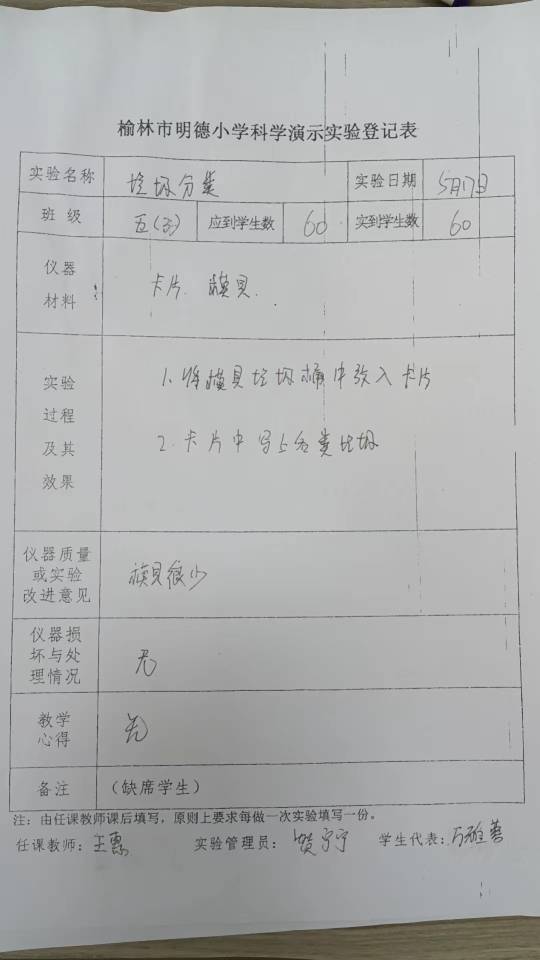 榆林市明德小学科学演示实验登记表
实验名称 垃圾分类 实验日期 5月17日
班 级 五(3) 应到学生数 60 实到学生数 60
仪器
材料
卡片. 模具.
实验
过程
及其
效果
1. 将模具垃圾桶中放入卡片
2. 卡片中写上各类垃圾
仪器质量
或实验
改进意见
模具很少
仪器损
坏与处
理情况
无
教学
心得
无
备注 (缺席学生)
注:由任课教师课后填写,原则上要求每做一次实验填写一份。
任课教师:王惠 实验管理员: 宁宁 学生代表: